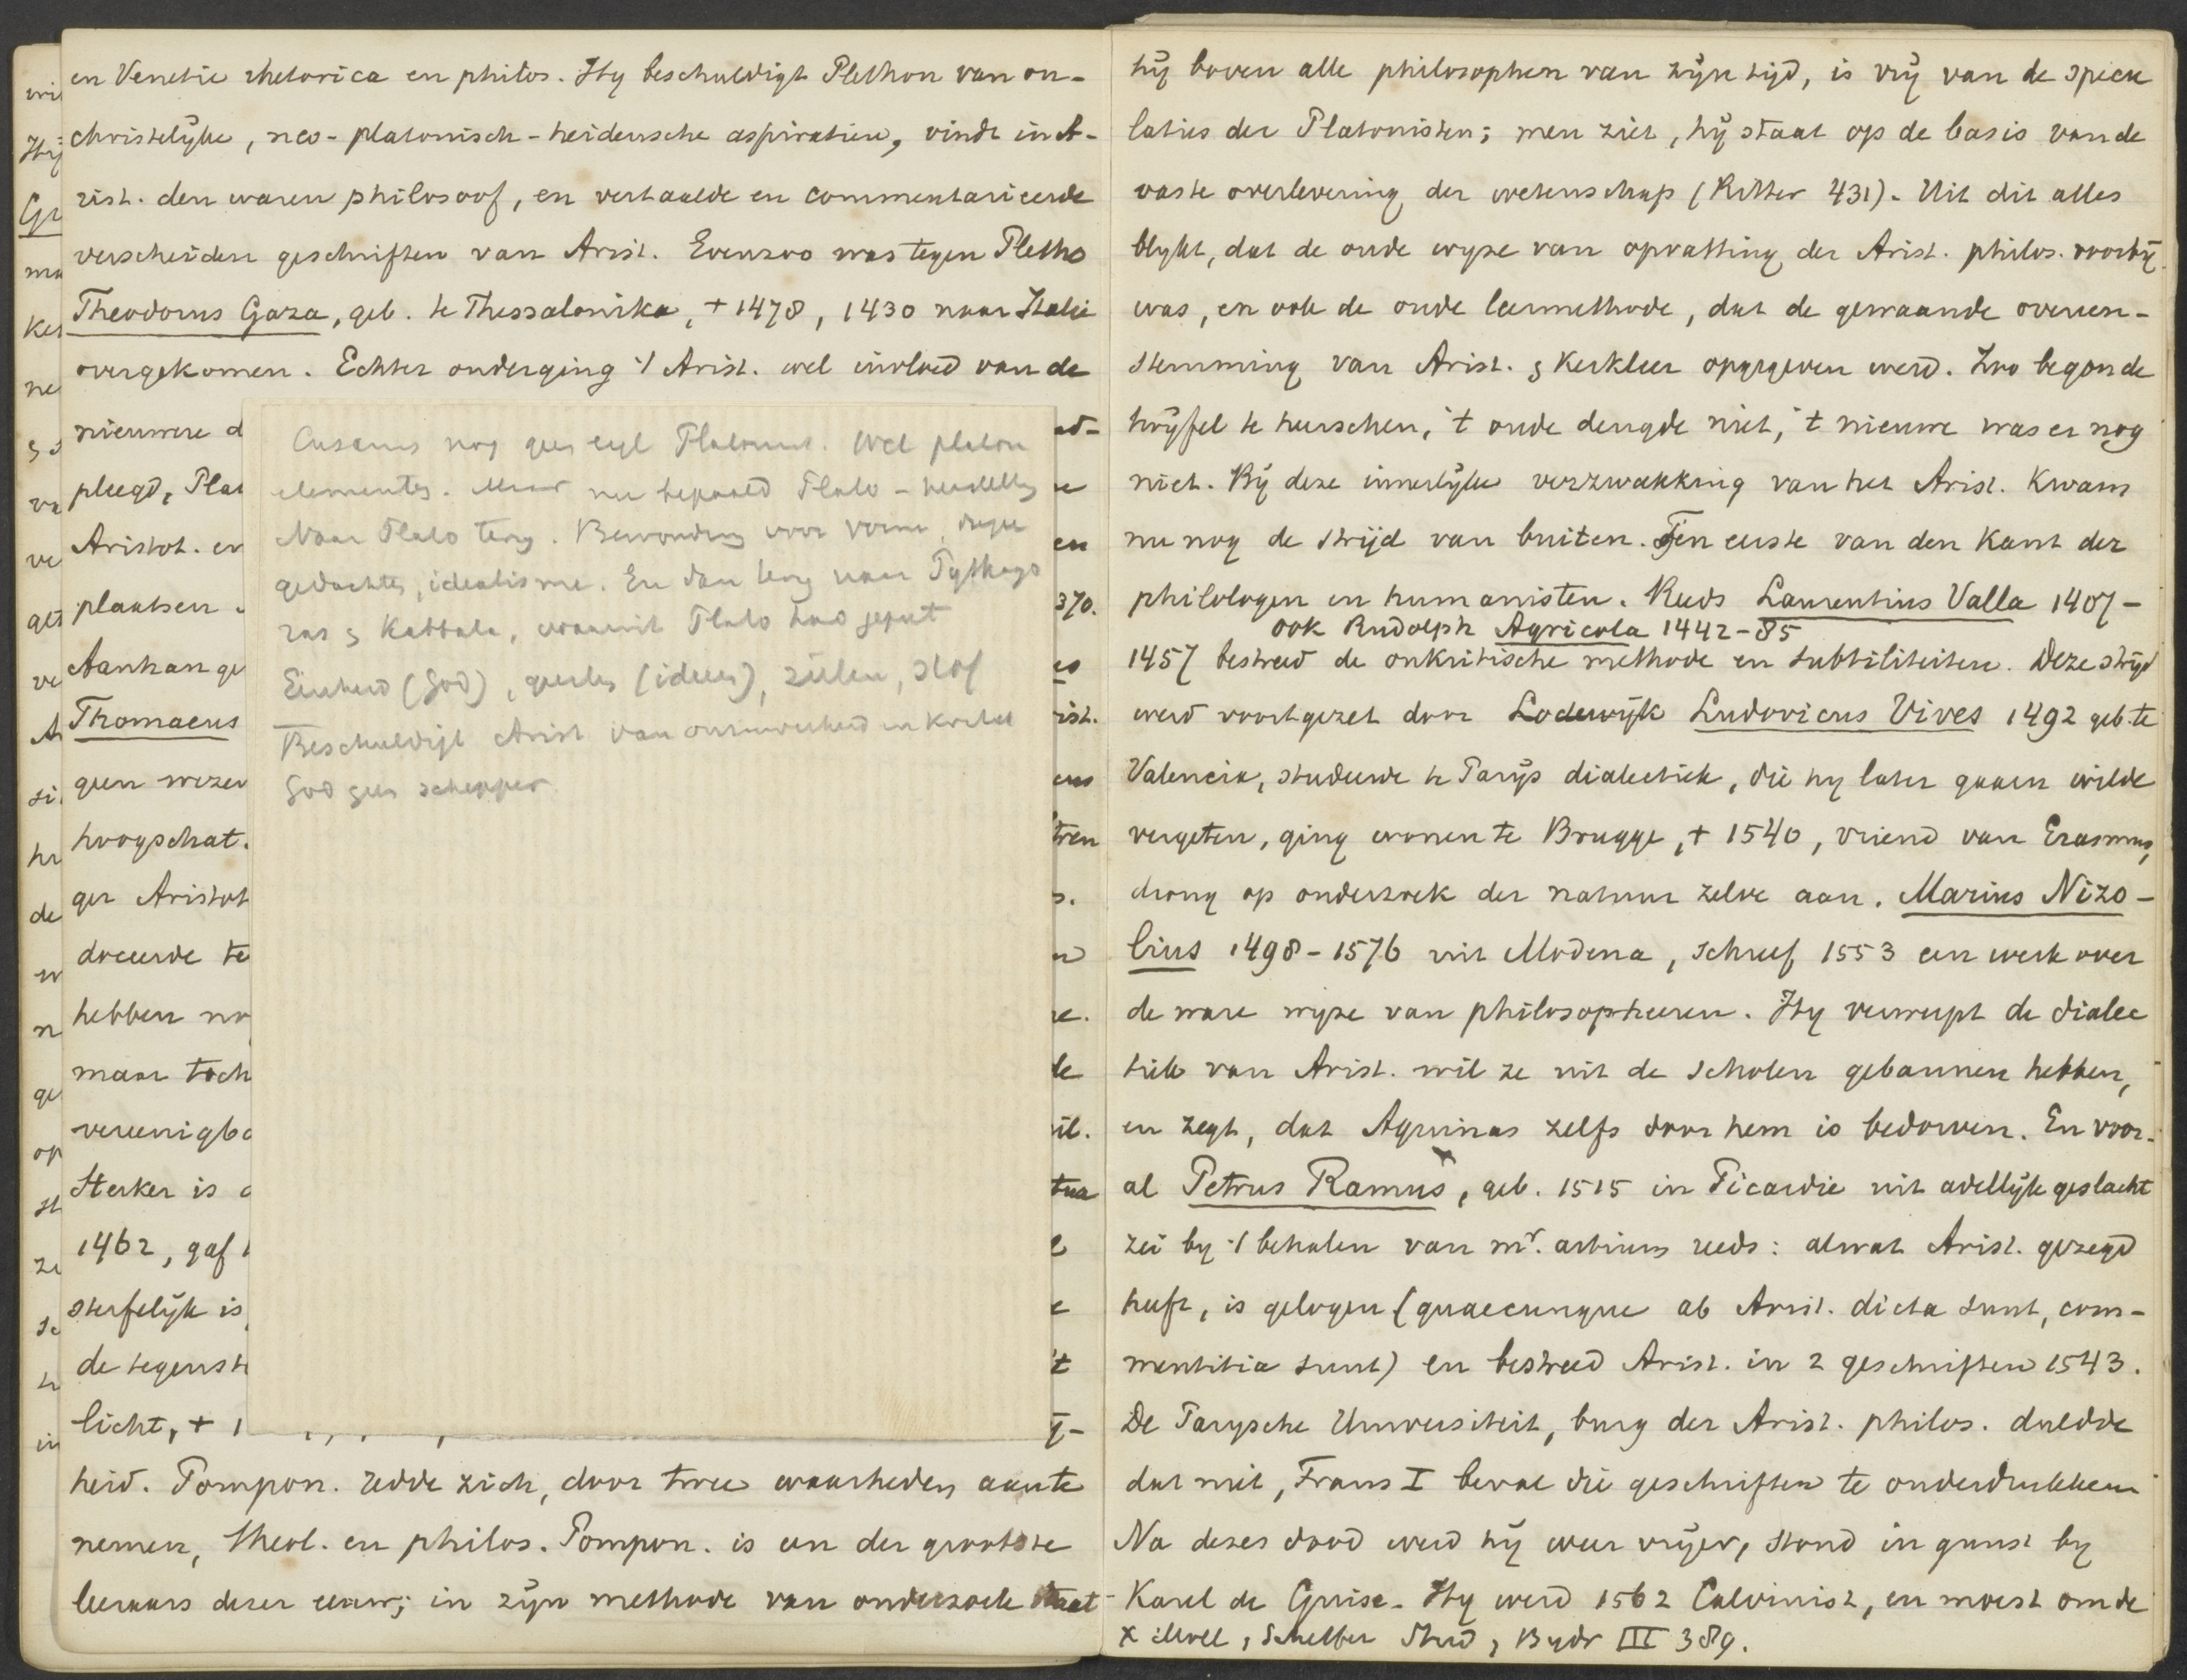 en Venetie rhetorica en philos. Hy beschuldigt Plethon van on-
christelyke, neo-platonisch-heidensche aspiratien, vindt in A-
rist. den waren philosoof, en vertaalde en commentarieerde
verscheiden geschriften van Arist. Evenzoo was tegen Pletho
Theodorus Gaza, geb. te Thessalonika, + 1478, 1430 naar Italie
overgekomen. Echter onderging 't Arist. wel invloed van de
nieuwere d
pleegd, Plat
Aristot. en
plaatsen
Aanhange
Thomaeus
geen wezen
hoogschat.
ger Aristot
doceerde te
hebben no
maar toch
vereenigba
Sterker is
1462, gaf
sterfelijk is
de tegenst
licht, + 1
heid. Pompon. redde zich, door twee waarheden aan te
nemen, theol. en philos. Pompon. is een der grootste
leeraars dezer eeuw; in zijn methode van onderzoek staat
Cusanus nog geen eigl Platonist. Wel platon
elementen. Maar nu bepaald Plato-herstelling
Naar Plato terug. Bewondering voor vorm, diepe
gedachten, idealisme. En dan terug naar Pythago
ras & Kabbala, waaruit Plato had geput
Eenheid (God), geesten (ideeen), zielen, stof
Beschuldigt Arist van
God geen schepper
hij boven alle philosophen van zijn tijd, is vrij van de specu
laties der Platonisten; men ziet, hij staat op de basis van de
vaste overlevering der wetenschap (Ritter 431). Uit dit alles
blykt, dat de oude wyze van opvatting der Arist. philos. voorbij
was, en ook de oude leermethode, dat de gewaande overeen-
stemming van Arist. & Kerkleer opgegeven werd. Zoo begon de
twijfel te heerschen, 't oude deugde niet, 't nieuwe was er nog
niet. Bij deze innerlijke verzwakking van het Arist. kwam
nu nog de strijd van buiten. Ten eerste van den kant der
philologen en humanisten. Reeds Laurentius Valla 1407-
ook Rudolph Agricola 1442-85
1457 bestreed de onkritische methode en subtiliteiten. Deze strijd
werd voortgezet door Lodewijk Ludovicus Vives 1492 geb. te
Valencia, studeerde te Parijs dialectiek, die hy later gaarn wilde
vergeten, ging wonen te Brugge, + 1540, vriend van Erasmus,
drong op onderzoek der natuur zelve aan. Marius Nizo-
lius 1498-1576 uit Modena, schreef 1553 een werk over
de ware wyze van philosopheeren. Hy verwerpt de dialec
tiek van Arist. wil ze uit de scholen gebannen hebben,
en zegt, dat Aquinas zelfs door hem is bedorven. En voor-
al Petrus Ramus x, geb. 1515 in Picardie uit adellijk geslacht
zei by 't behalen van mr. artium reeds: alwat Arist. gezegd
heeft, is gelogen (quaecunque ab Arist. dicta sunt, com-
mentitia sunt) en bestreed Arist. in 2 geschriften 1543.
De Parysche Universiteit, burg der Arist. philos. duldde
dat niet, Frans I beval die geschriften te onderdrukken
Na dezes dood werd hij weer vrijer, stond in gunst by
Karel de Guise. Hy werd 1562 Calvinist, en moest om de
x Moll, Scheffer Stud, Bydr III 389.